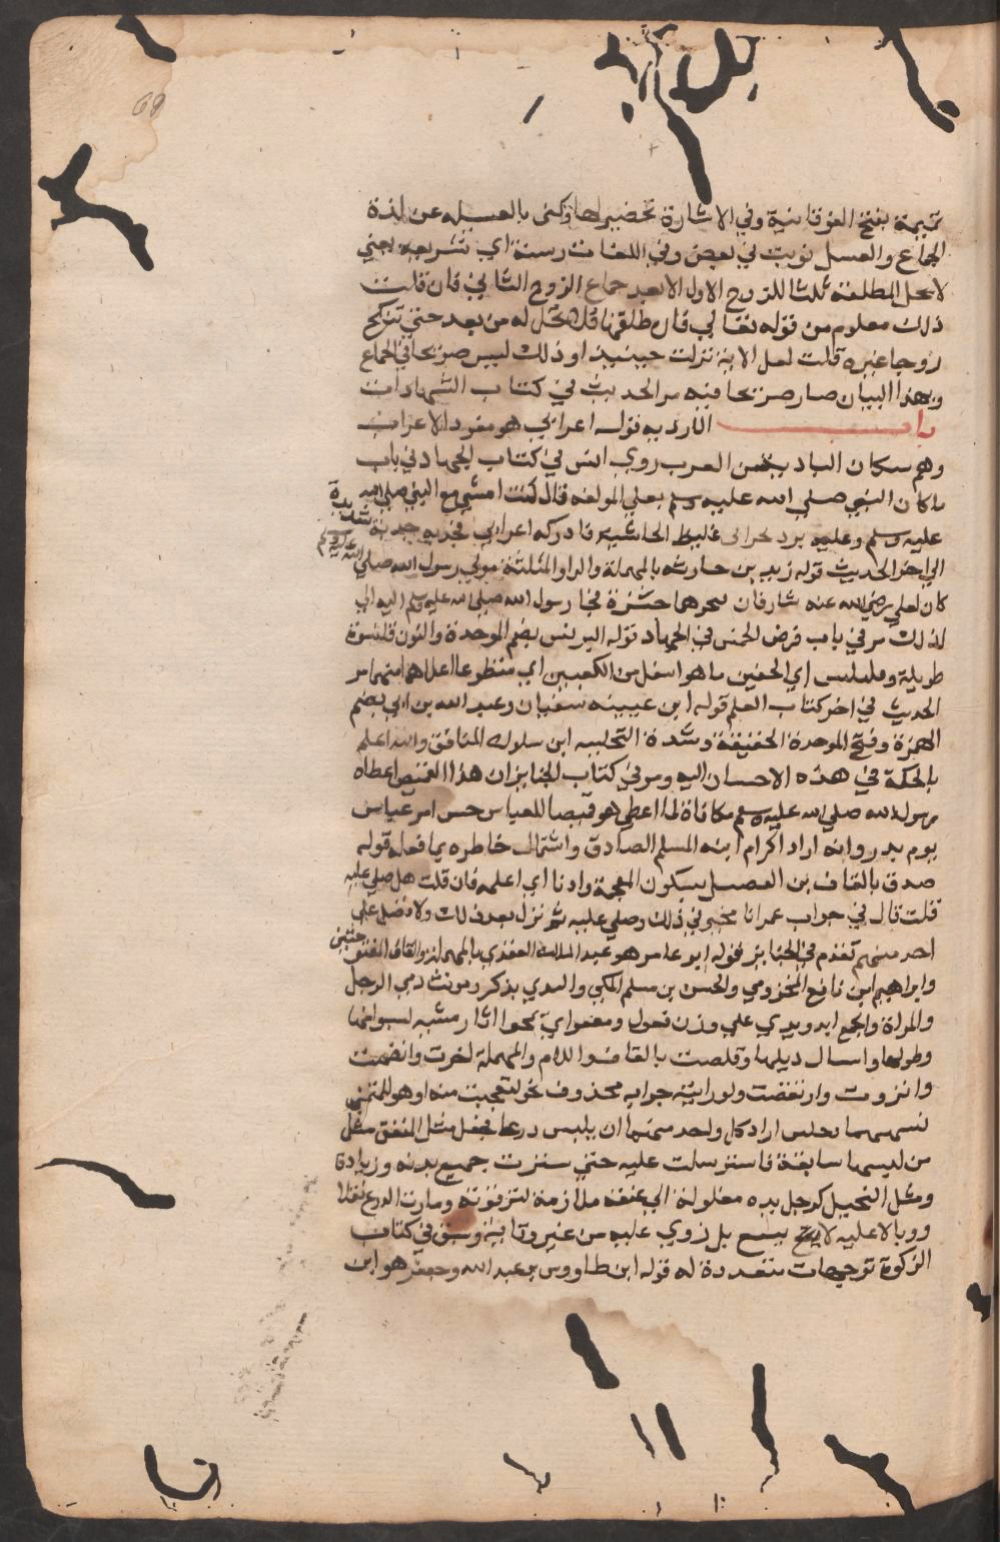 69
تميمة بفتح الفوقانية وفي الاشارة تحضير لها وكنى بالعسيلة عن لذة
الجماع والعسل يونث في بعض وفي اللغات وسنة اي شريعة يعني
لا تحل المطلقة ثلثا للزوج الاول الا بعد جماع الزوج الثاني فان قلت
ذلك معلوم من قوله تعالى فان طلقها فلا تحل له من بعد حتى تنكح
زوجا غيره قلت لعل الاية نزلت حينئذ او ذلك ليس صريحا في الجماع
وبهذا البيان صار صريحا فيه مر الحديث في كتاب الشهادات
باب الاردية قوله اعرابي هو مفرد الاعراب
وهم سكان البادية من العرب روى انس في كتاب الجهاد في باب
ما كان النبي صلى الله عليه وسلم يعطي المولفة قال كنت امشي مع النبي صلى الله
عليه وسلم وعليه برد نجراني غليظ الحاشية فادركه اعرابي فجذبه جذبة شديدة
الى اخر الحديث قوله زيد بن حارثة بالمهملة والراء والمثلثة مولى رسول الله صلى الله عليه وسلم
كان لعلي رضي الله عنه شارفان نحرهما حمزة فجا رسول الله صلى الله عليه وسلم اليه الى
لذلك مر في باب فرض الخمس في الجهاد قوله البرنس بضم الموحدة والنون قلنسوة
طويلة وفليلبس اي الخفين ما هو اسفل من الكعبين اي مقطوعا اعلاهما منهما مر
الحديث في اخر كتاب العلم قوله ابن عيينه سفيان وعبد الله بن ابي بضم
الهمزة وفتح الموحدة الخفيفة وشدة التحتانية ابن سلول المنافق والله اعلم
بالحكمة في هذه الاحسان اليه ومر في كتاب الجنايز ان هذا القميص اعطاه
رسول الله صلى الله عليه وسلم مكافاة لما اعطى هو قميصا للعباس حين اسر عباس
يوم بدر وانه اراد اكرام ابنه المسلم الصادق واشتمال خاطره بما فعله قوله
صدقة بالقاف بن الفضل بسكون المعجمة واذنا اي اعلمه فان قلت هل صلى عليه
قلت قال في جواب عمر انا مخير في ذلك وصلى عليه ثم نزل بعد ذلك ولا تصل على
احد منهم تقدم في الجنايز قوله ابو عامر هو عبد الملك العقدي بالمهملة والقاف المفتوحتين
وابراهيم ابن نافع المخزومي والحسن بن مسلم المكي واليدي يذكر ويونث ثدي الرجل
والمراة والجمع اثد وثدي على وزن فعول وتعفو اي تمحوا اثار مشيه لسبوغها
وطولها واسبال ذيلها وقلصت بالقاف واللام والمهملة تاخرت وانضمت
وانزوت وارتفعت ولو رايته جوابه محذوف نحو لتعجبت منه او هو للتمني
اراد كل واحد منهما ان يلبس درعا فجعل مثل المنفق مثل
من لبسها سابغة فاسترسلت عليه حتى سترت جميع بدنه وزيادة
ومثل البخيل كرجل يده مغلولة الى عنقه ملازمة لترقوته وصارت الدرع ثقلا
ووبالا عليه لا يتسع بل تزوي عليه من غير وقاية وسبق في كتاب
الزكوة توجيهات متعددة له قوله ابن طاووس بن عبد الله وجعفر هو ابن